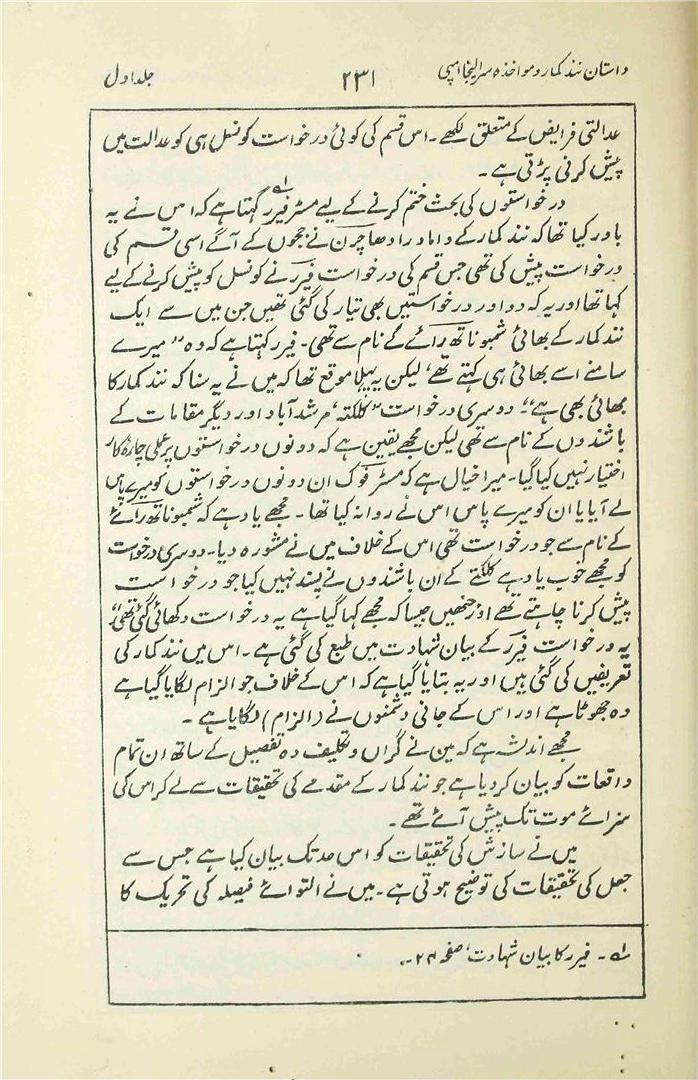 داستان نند کمار و مواخذہ سر الیجا امپی ۲۳۱ جلد اول
عدالتی فرایض کے متعلق لکھے۔ اس قسم کی کوئی درخواست کونسل ہی کو عدالت میں
پیش کرنی پڑتی ہے۔
درخواستوں کی بحث ختم کرنے کے لیے مسٹر فیرر کہتا ہے کہ اس نے یہ
باور کیا تھا کہ نند کمار کے داماد رادھا چرن نے ججوں کے آگے اسی قسم کی
درخواست پیش کی تھی جس قسم کی درخواست فیرر نے کونسل کو پیش کرنے کے لیے
کہا تھا اور یہ کہ دو اور درخواستیں بھی تیار کی گئی تھیں جن میں سے ایک
نند کمار کے بھائی شمبو ناتھ رائے کے نام سے تھی۔ فیرر کہتا ہے کہ وہ ”میرے
سامنے اسے بھائی ہی کہتے تھے‘ لیکن یہ پہلا موقع تھا کہ میں نے یہ سنا کہ نند کمار کا
بھائی بھی ہے“۔ دوسری درخواست ”کلکتہ‘ مرشد آباد اور دیگر مقامات کے
باشندوں کے نام سے تھی لیکن مجھے یقین ہے کہ دونوں درخواستوں پر عملی چارہ کار
اختیار نہیں کیا گیا۔ میرا خیال ہے کہ مسٹر فوک ان دونوں درخواستوں کو میرے پاس
لے آیا یا ان کو میرے پاس اس نے روانہ کیا تھا۔ مجھے یاد ہے کہ شمبو ناتھ رائے
کے نام سے جو درخواست تھی اس کے خلاف میں نے مشورہ دیا۔ دوسری درخواست
کو مجھے خوب یاد ہے کلکتے کے ان باشندوں نے پسند نہیں کیا جو درخواست
پیش کرنا چاہتے تھے اور جنھیں جیسا کہ مجھے کہا گیا ہے یہ درخواست دکھائی گئی تھی“
یہ درخواست فیرر کے بیان شہادت میں طبع کی گئی ہے۔ اس میں نند کمار کی
تعریفیں کی گئی ہیں اور یہ بتایا گیا ہے کہ اس کے خلاف جو الزام لگایا گیا ہے
وہ جھوٹا ہے اور اس کے جانی دشمنوں نے (الزام) لگایا ہے۔
مجھے اندیشہ ہے کہ میں نے گراں و تکلیف دہ تفصیل کے ساتھ ان تمام
واقعات کو بیان کر دیا ہے جو نند کمار کے مقدمے کی تحقیقات سے لے کر اس کی
سزائے موت تک پیش آئے تھے۔
میں نے سازش کی تحقیقات کو اس حد تک بیان کیا ہے جس سے
جعل کی تحقیقات کی توضیح ہوتی ہے۔ میں نے التوائے فیصلہ کی تحریک کا
لہ۔ فیرر کا بیان شہادت‘ صفحہ ۲۴۔